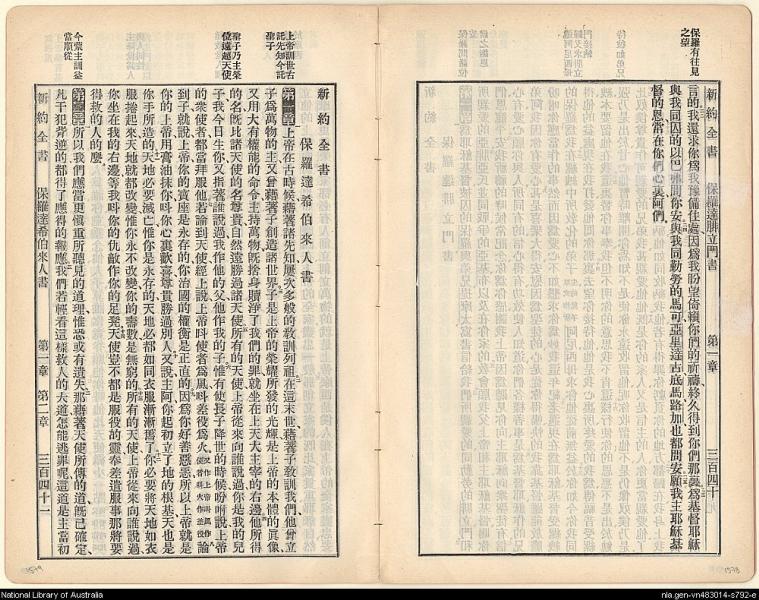 保羅有往見之望
新約全書 保羅達腓立門書 第一章 三百四十
言的我還求你爲我豫備住處因爲我盼望倚賴你們的祈禱終久得到你們那裏爲基督耶穌
與我同囚的以巴弗問你安與我同勤勞的馬可亞里達古底馬路加也都問安願我主耶穌基
督的恩常在你們心裏阿們
上帝訓世古託先知今託
聖子乃主榮位遠超天使
今蒙主訓益當順從
新約全書
保羅達希伯來人書
第一章上帝在古時候藉著諸先知屢次多般的教訓列祖在這末世藉著子教訓我們他曾立
子爲萬物的主又曾藉著子創造諸世界子是上帝的榮耀所發的光輝是上帝的本體的眞像
又用大有權能的命令主持萬物旣捨身贖淨了我們的罪就坐在上天大主宰的右邊他所得
的名旣比諸天使的名尊貴自然遠勝過諸天使所有的天使上帝從來向誰說過你是我的兒
子我今日生你又指著誰說過我作他的父他作我的子惟有使長子降世的時候吩咐說上帝
的衆使者都當拜服他若論到天使經上說上帝呌使者爲風呌差役爲火論
到子就說上帝你的寶座是永存的你治國的權衡是正直的因爲你好善惡惡所以上帝就是
你的上帝用膏油抹你呌你心裏歡喜尊貴勝過別人又說主阿你起初立了地的根基天也是
你手所造的天地必要滅亡惟你是永存的天地必都如同衣服漸漸舊了你必要將天地如衣
服捲起來天地就都改變惟你永不改變你的壽數是無窮的所有的天使上帝從來向誰說過
你坐在我的右邊等我呌你的仇敵作你的足凳天使豈不都是服役的靈奉差遣服事那將要
得救的人的麼
第二章所以我們應當更愼重所聽見的道理惟恐或有遺失那藉著天使所傳的道旣已確定
凡干犯背逆的都得了應得的報應我們若輕看這樣救人的大道怎能逃罪呢這道是主當初
新約全書 保羅達希伯來人書 第一章 第二章 三百四十一
National Library of Australia
nla.gen-vn483014-s792-e